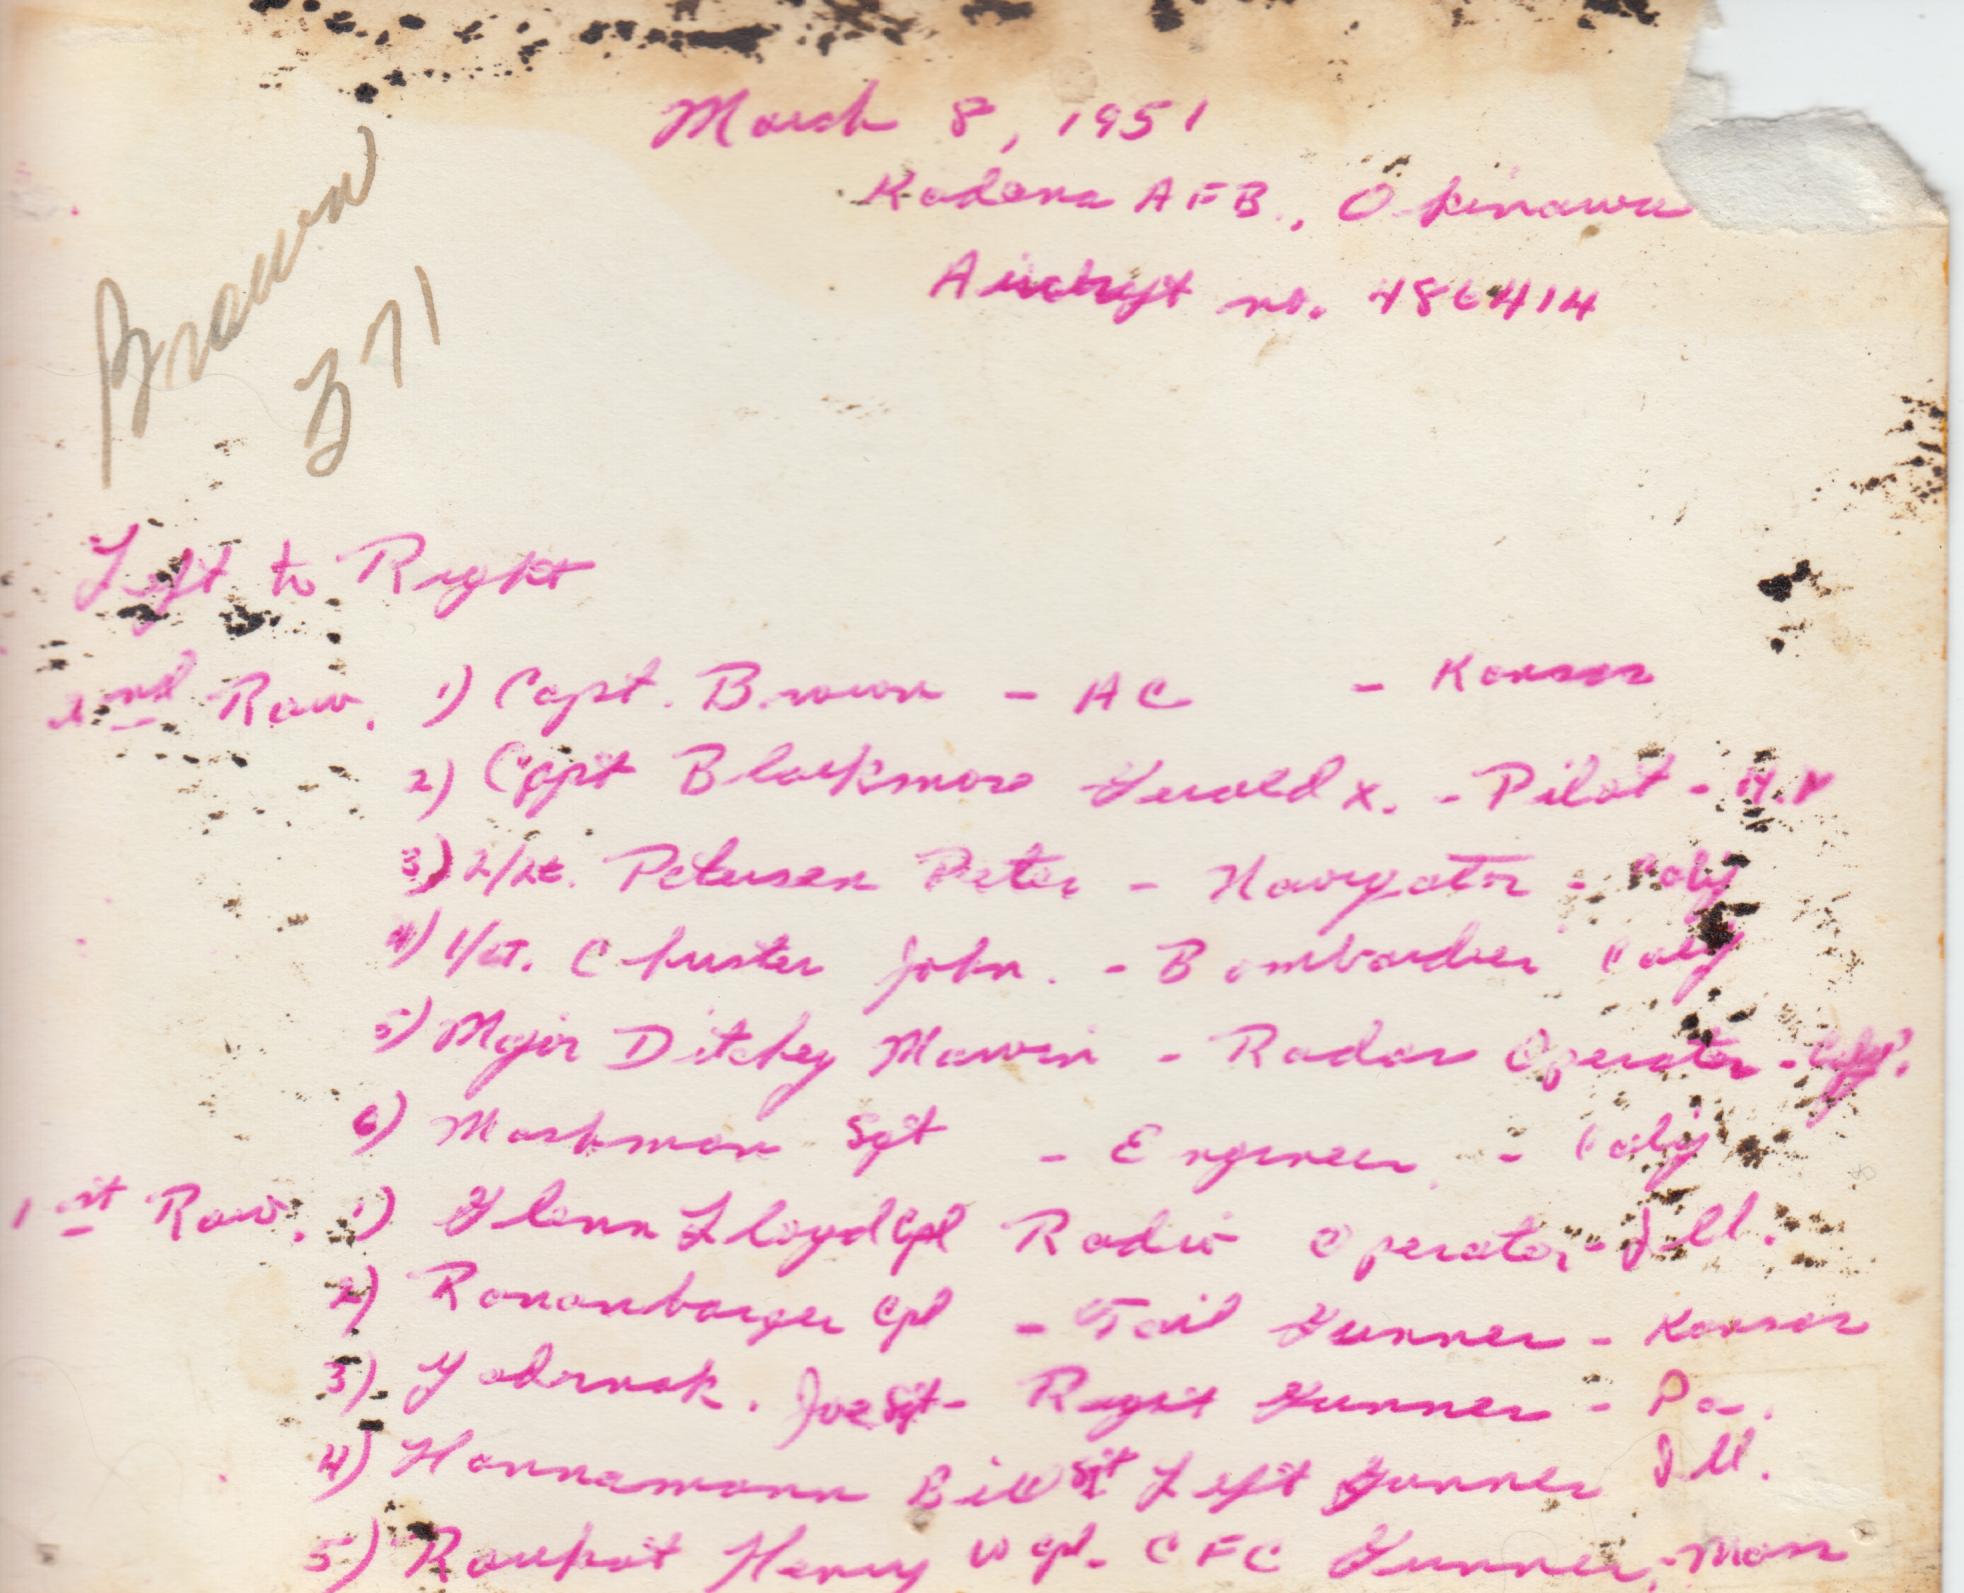 March 8, 1951
Kadena AFB., Okinawa
Aircraft no. 486414
Brown
371
Left to Right
2nd Row. 1) Capt. Brown - AC - Kansas
2) Capt Blackmore Gerald X. - Pilot -
3) 2/Lt. Petersen Peter - Navigator - Calif
4) 1/Lt. Chuster John. - Bombardier Calif
5) Major Ditchey Marvin - Radar Operator - Calif.
6) Mashman Sgt - Engineer - Calif
1st Row. 1) Glenn Lloyd Cpl Radio Operator - Ill.
2) Ronanbarger Cpl - Tail Gunner - Kansas
3) Yadrnak. Joe Sgt - Right Gunner - Pa.
4) Hannamann Bill Sgt Left Gunner Ill.
5) Raukat Henry W Cpl. CFC Gunner, - Mass